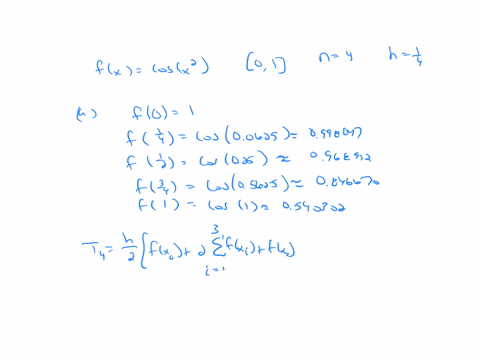 f(x) = cos(x²) [0,1] n=4 h=1/4
(a) f(0) = 1
f(1/4) = cos(0.0625) ≈ 0.998047
f(1/2) = cos(0.25) ≈ 0.968912
f(3/4) = cos(0.5625) ≈ 0.846670
f(1) = cos(1) ≈ 0.540302
T₄ = h/2 [f(x₀) + 2 3∑i=1 f(xᵢ) + f(x₄)